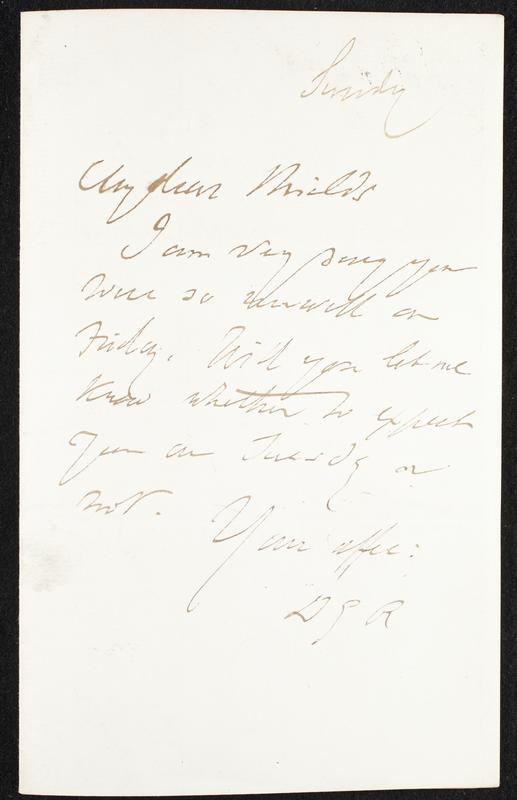 Sunday
My dear Shields
I am very sorry you
were so unwell on
Friday. Will you let me
know whether to expect
you on Tuesday or
not.
Your affec:
DGR